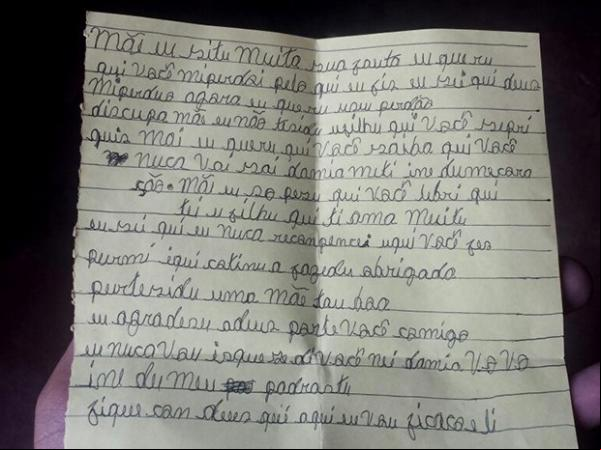 Mãi eu situ muita sua fauto eu queru
qui você miperdoi pelo qui eu fis eu sei qui deus
miperdua agara eu queru u seu perdão
discupa mãi eu não tisidu u filhu qui você sepri
quis mai eu queru qui você saiba qui você
nuca vai sai da mia meti ine du meu cara
ção. Mãi eu so pesu qui você lebri qui
tei u filhu qui ti ama muitu
eu sei qui eu nuca recarpencei u qui você fes
purmi i qui catinu a fagedu abrigado
purtersidu uma mãe tau boa
eu agradesu a deus parte você camigo
eu nuca vau isquese di você nei da mia vovo
ine du meu padrastu
fique can deus qui aqui eu vau fica coeli